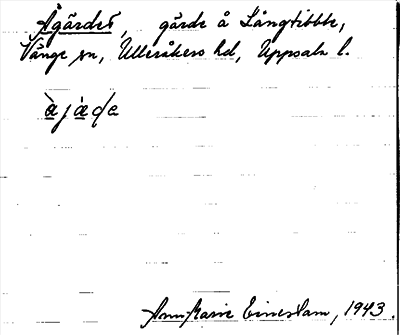 Ågärdet, gärde å Långtibble,
Vänge sn, Ulleråkers hd, Uppsala l.
Ann-Marie Einerstam, 1943.